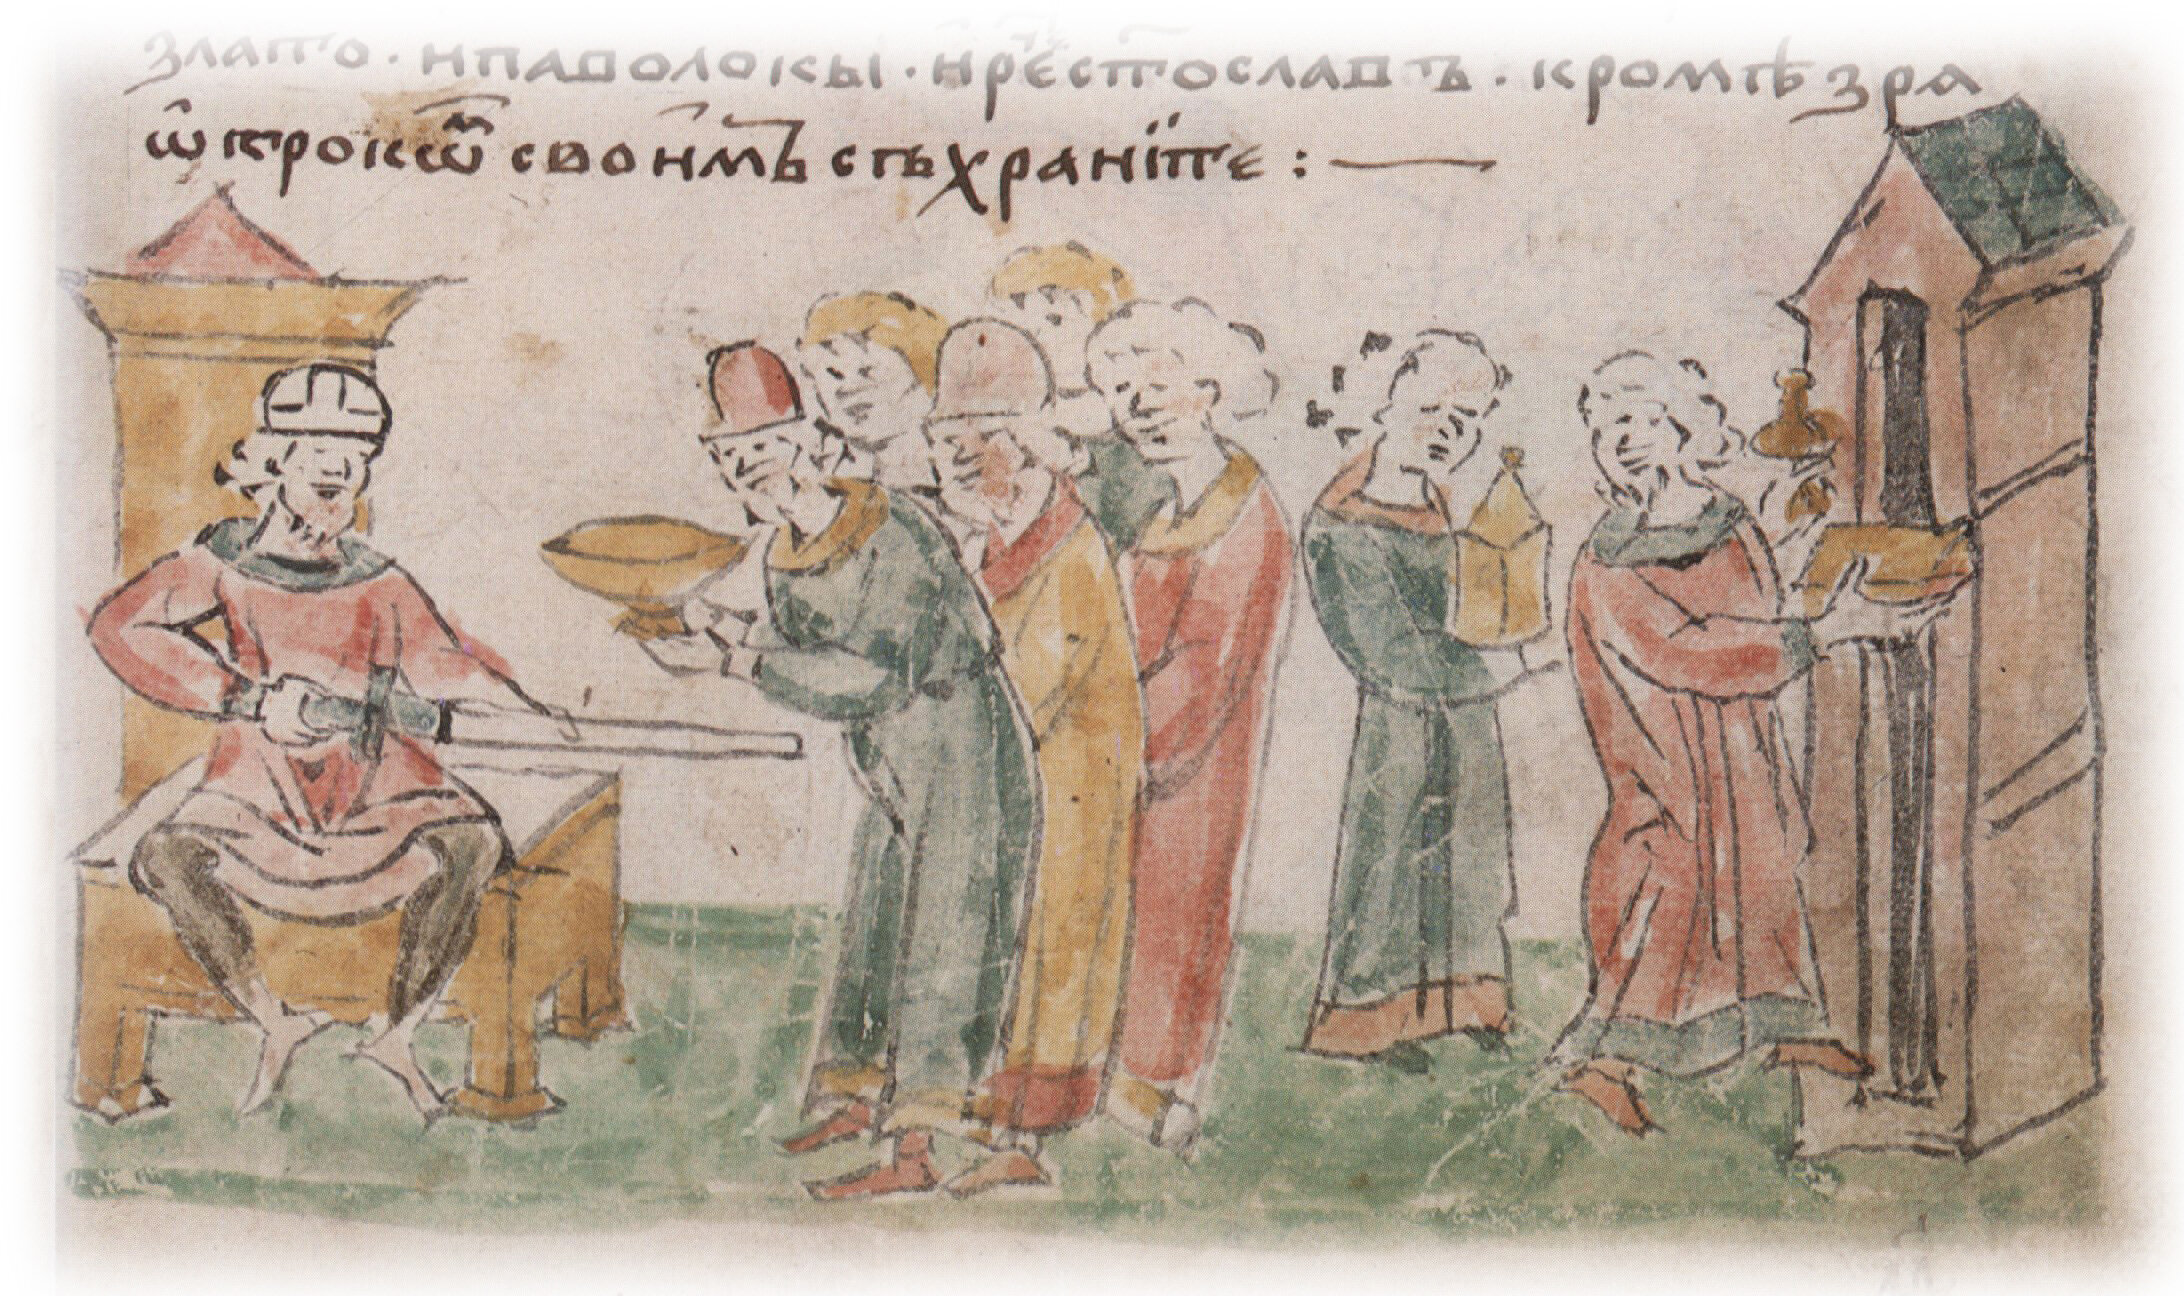 злато · и паволокы · и рече с҃тославъ · кромѣ зря
ѿрокѡⷨ своимъ съхраните :